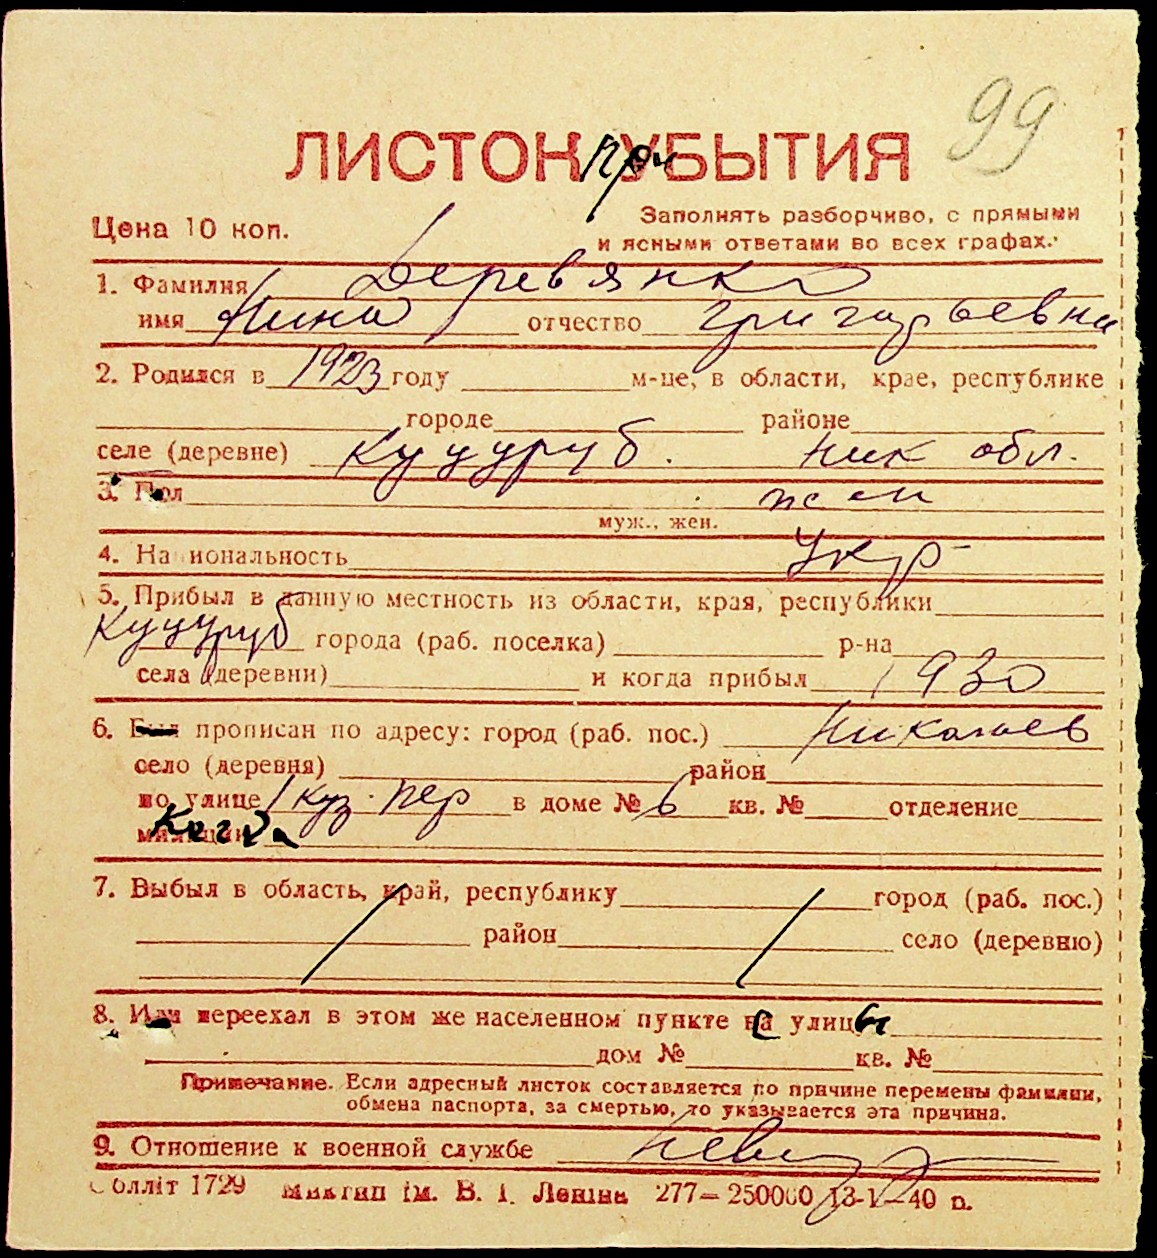 99
ЛИСТОК при УБЫТИЯ
Цена 10 коп.
Заполнять разборчиво, с прямыми
и ясными ответами во всех графах.
1. Фамилия Деревянко
имя Нина отчество Григорьевна
2. Родился в 1923 году м-це, в области, крае, республике
городе районе
селе (деревне) Куцуруб. Ник обл.
3. Пол жен
муж., жен.
4. Национальность Укр
5. Прибыл в данную местность из области, края, республики
Куцуруб города (раб. поселка) р-на
села (деревни) и когда прибыл 1930
6. Был прописан по адресу: город (раб. пос.) Николаев
село (деревня) район
по улице 1 куз. пер в доме № 6 кв. № отделение
милиции Когда
7. Выбыл в область, край, республику город (раб. пос.)
район село (деревню)
8. Или переехал в этом же населенном пункте с улицы
дом № кв. №
Примечание. Если адресный листок составляется по причине перемены фамилии,
обмена паспорта, за смертью, то указывается эта причина.
9. Отношение к военной службе
Облліт 1729 ім. В. І. Леніна 277—250000 40 р.